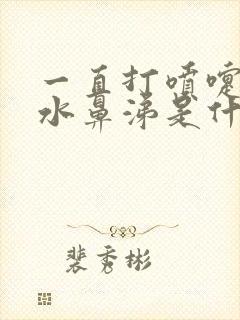 一直打喷嚏
水鼻涕是什
裴秀彬